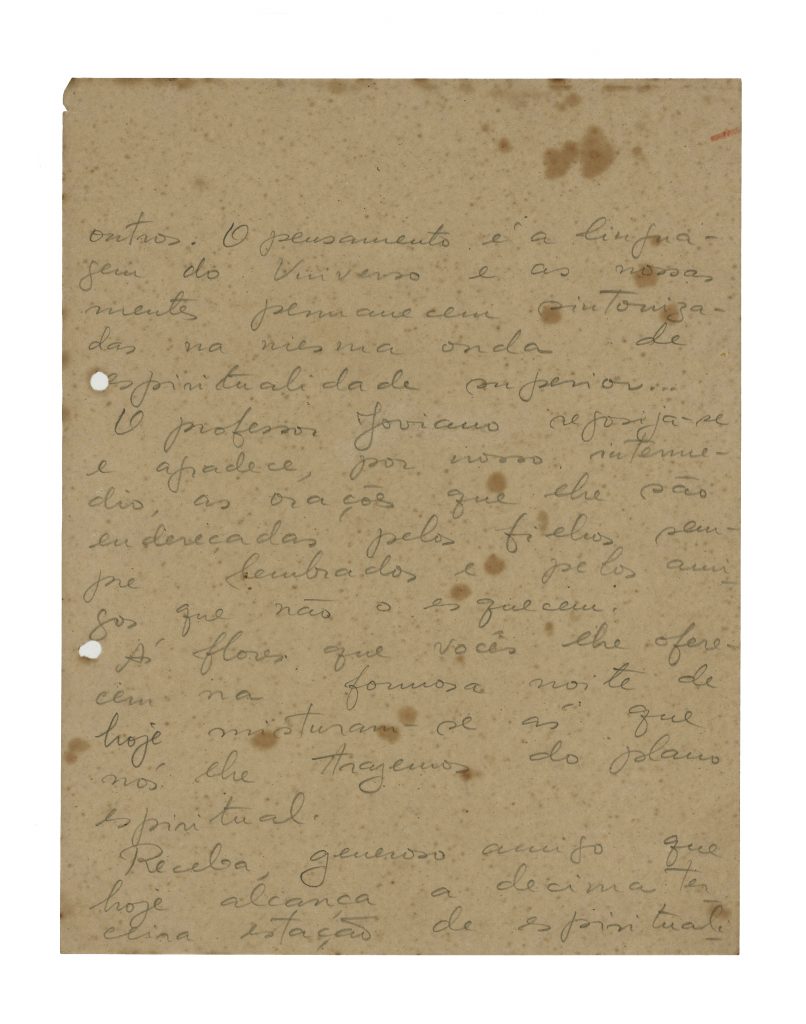 outros. O pensamento é a lingua-
gem do Universo e as nossas
mentes permanecem sintoniza-
das na mesma onda de
espiritualidade superior...
O professor Joviano regosija-se
e agradece, por nosso interme-
dio, as orações que lhe são
endereçadas pelos filhos sem-
pre lembrados e pelos ami-
gos que não o esquecem.
Ás flores que vocês lhe ofere-
cem na formosa noite de
hoje misturam-se as que
nós lhe trazemos do plano
espiritual.
Receba, generoso amigo que
hoje alcança a decima ter-
ceira estação de espirituali-